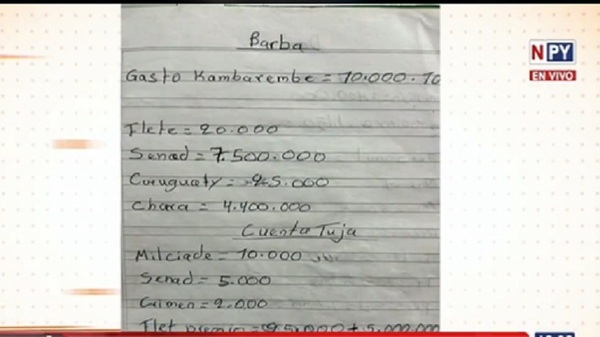 Barba
NPY
EN VIVO
Gasto Kambarembe = 10.000.10
Flete = 20.000
Senad = 7.500.000
Curuguaty = 25.000
Chara = 4.400.000
Cuenta Tuja
Milciade = 10.000
Senad = 5.000
Carmen = 2.000
Flet premio = 25.000 + 5.000.000